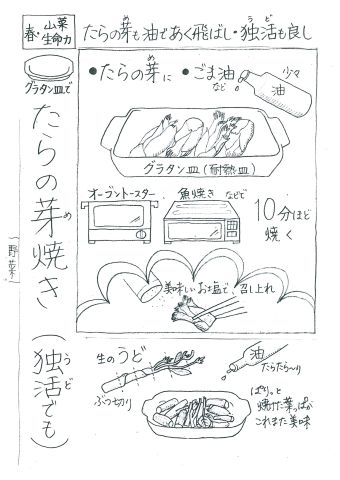 春・山菜
生命力
たらの芽も油であく飛ばし・独活も良し
め
うど
グラタン皿で
たらの芽焼き(独活でも)
め
うど
(野菜)
●たらの芽に
●ごま油
など
少々
油
グラタン皿(耐熱皿)
オーブントースター
魚焼き
などで
10分ほど
焼く
美味しいお塩で、召し上れ
生のうど
ぶつ切り
油
たらたら〜り
ぱりっと
焼けた葉っぱが
これまた美味